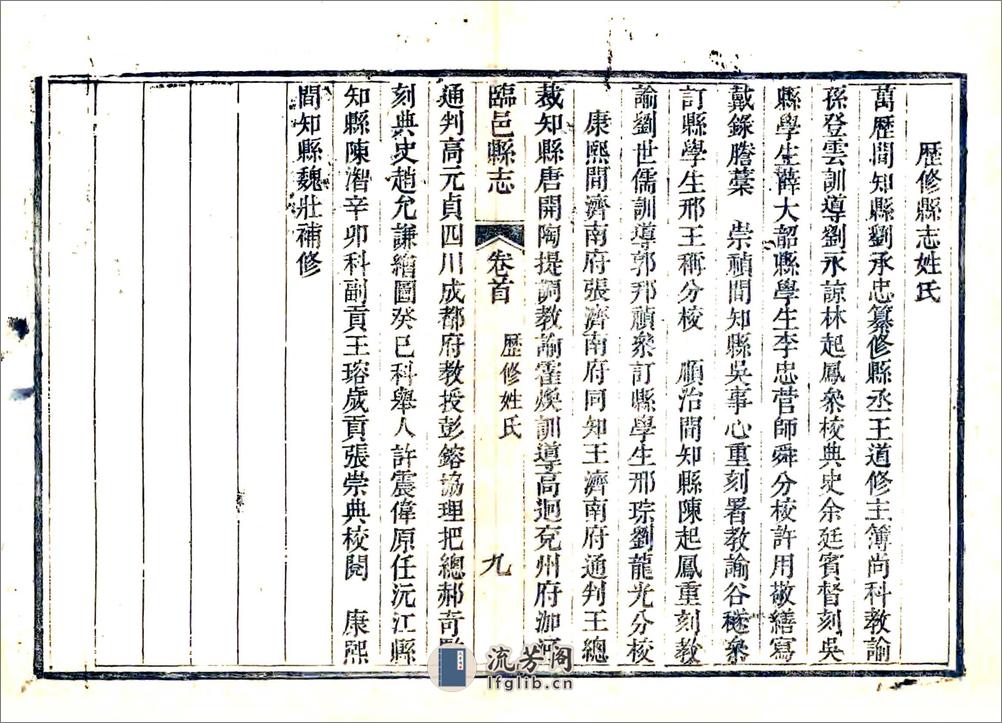 歷修縣志姓氏
萬歷間知縣劉承忠纂修縣丞王道修主簿尚科教諭
孫登雲訓導劉永諒林起鳳叅校典史余廷賓督刻吳
縣學生薛大韶縣學生李忠菅師舜分校許用敬繕寫
戴錄謄藳 崇禎間知縣吳事心重刻署教諭谷㷟叅
訂縣學生邢王稱分校 順治間知縣陳起鳳重刻教
諭劉世儒訓導郭邦禎叅訂縣學生邢琮劉龍光分校
康熙間濟南府張濟南府同知王濟南府通判王總
裁知縣唐開陶提調教諭霍煥訓導高迥兗州府泇河
臨邑縣志 卷首 歷修姓氏 九
通判高元貞四川成都府教授彭鎔協理把總郝奇
刻典史趙允謙繪圖癸巳科舉人許震偉原任沅江縣
知縣陳潪辛卯科副貢王瑢歲貢張崇典校閱 康熙
間知縣魏壯補修
流芳閣
lfglib.cn